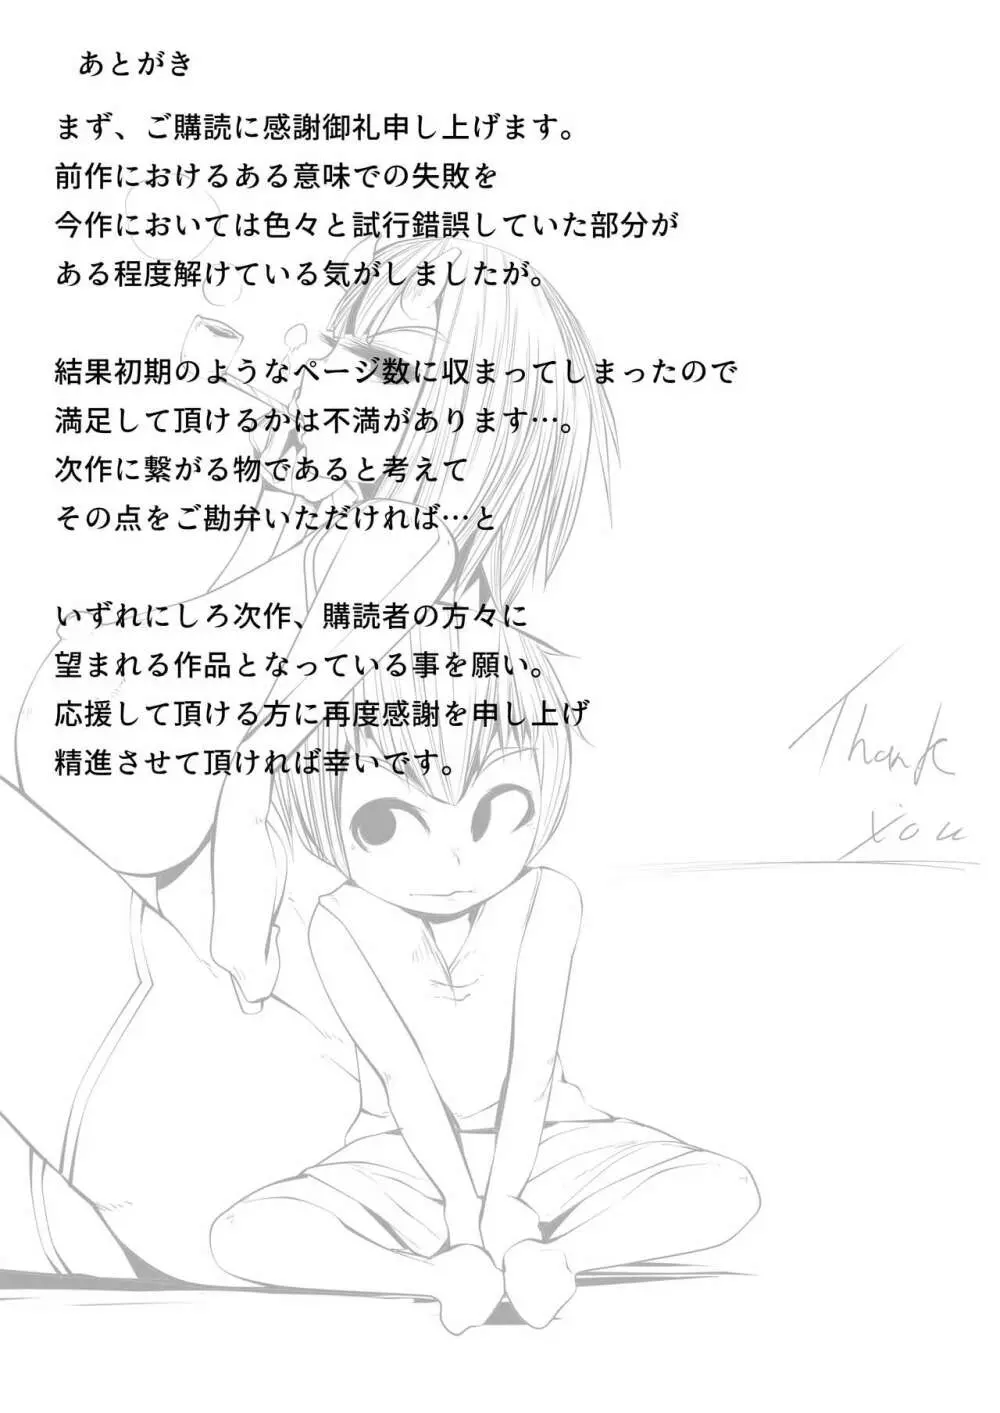 あとがき
まず、ご購読に感謝御礼申し上げます。
前作におけるある意味での失敗を
今作においては色々と試行錯誤していた部分が
ある程度解けている気がしましたが。
結果初期のようなページ数に収まってしまったので
満足して頂けるかは不満があります…。
次作に繋がる物であると考えて
その点をご勘弁いただければ…と
いずれにしろ次作、購読者の方々に
望まれる作品となっている事を願い。
応援して頂ける方に再度感謝を申し上げ
精進させて頂ければ幸いです。
Thank
you